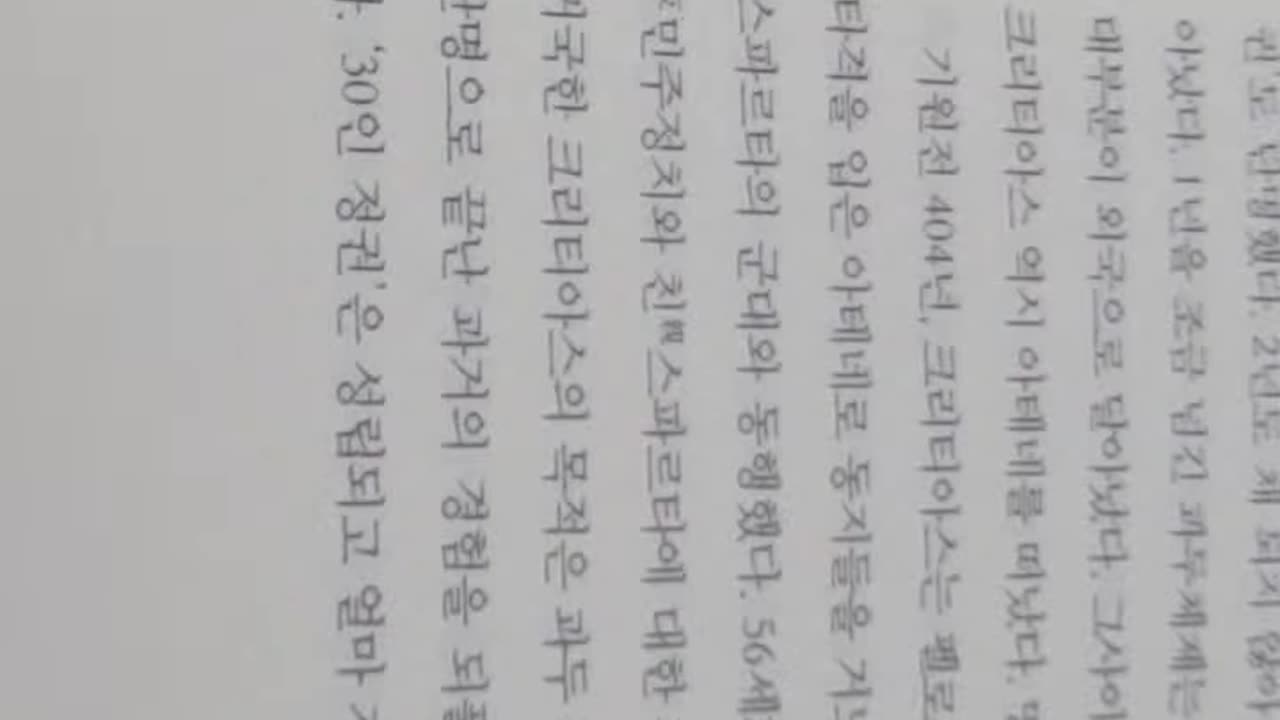 단명했다. 2년도 채 되지 않아
아났다. 1년을 조금 넘긴 과두체제는
대부분이 외국으로 달아났다. 그 사이
크리티아스 역시 아테네를 떠났다.
기원전 404년, 크리티아스는 펠로
타격을 입은 아테네로 동지들을
스파르타의 군대와 동행했다. 56세
민주정치와 친親스파르타에 대한
귀국한 크리티아스의 목적은 과두
단명으로 끝난 과거의 경험을 되풀
'30인 정권'은 성립되고 얼마